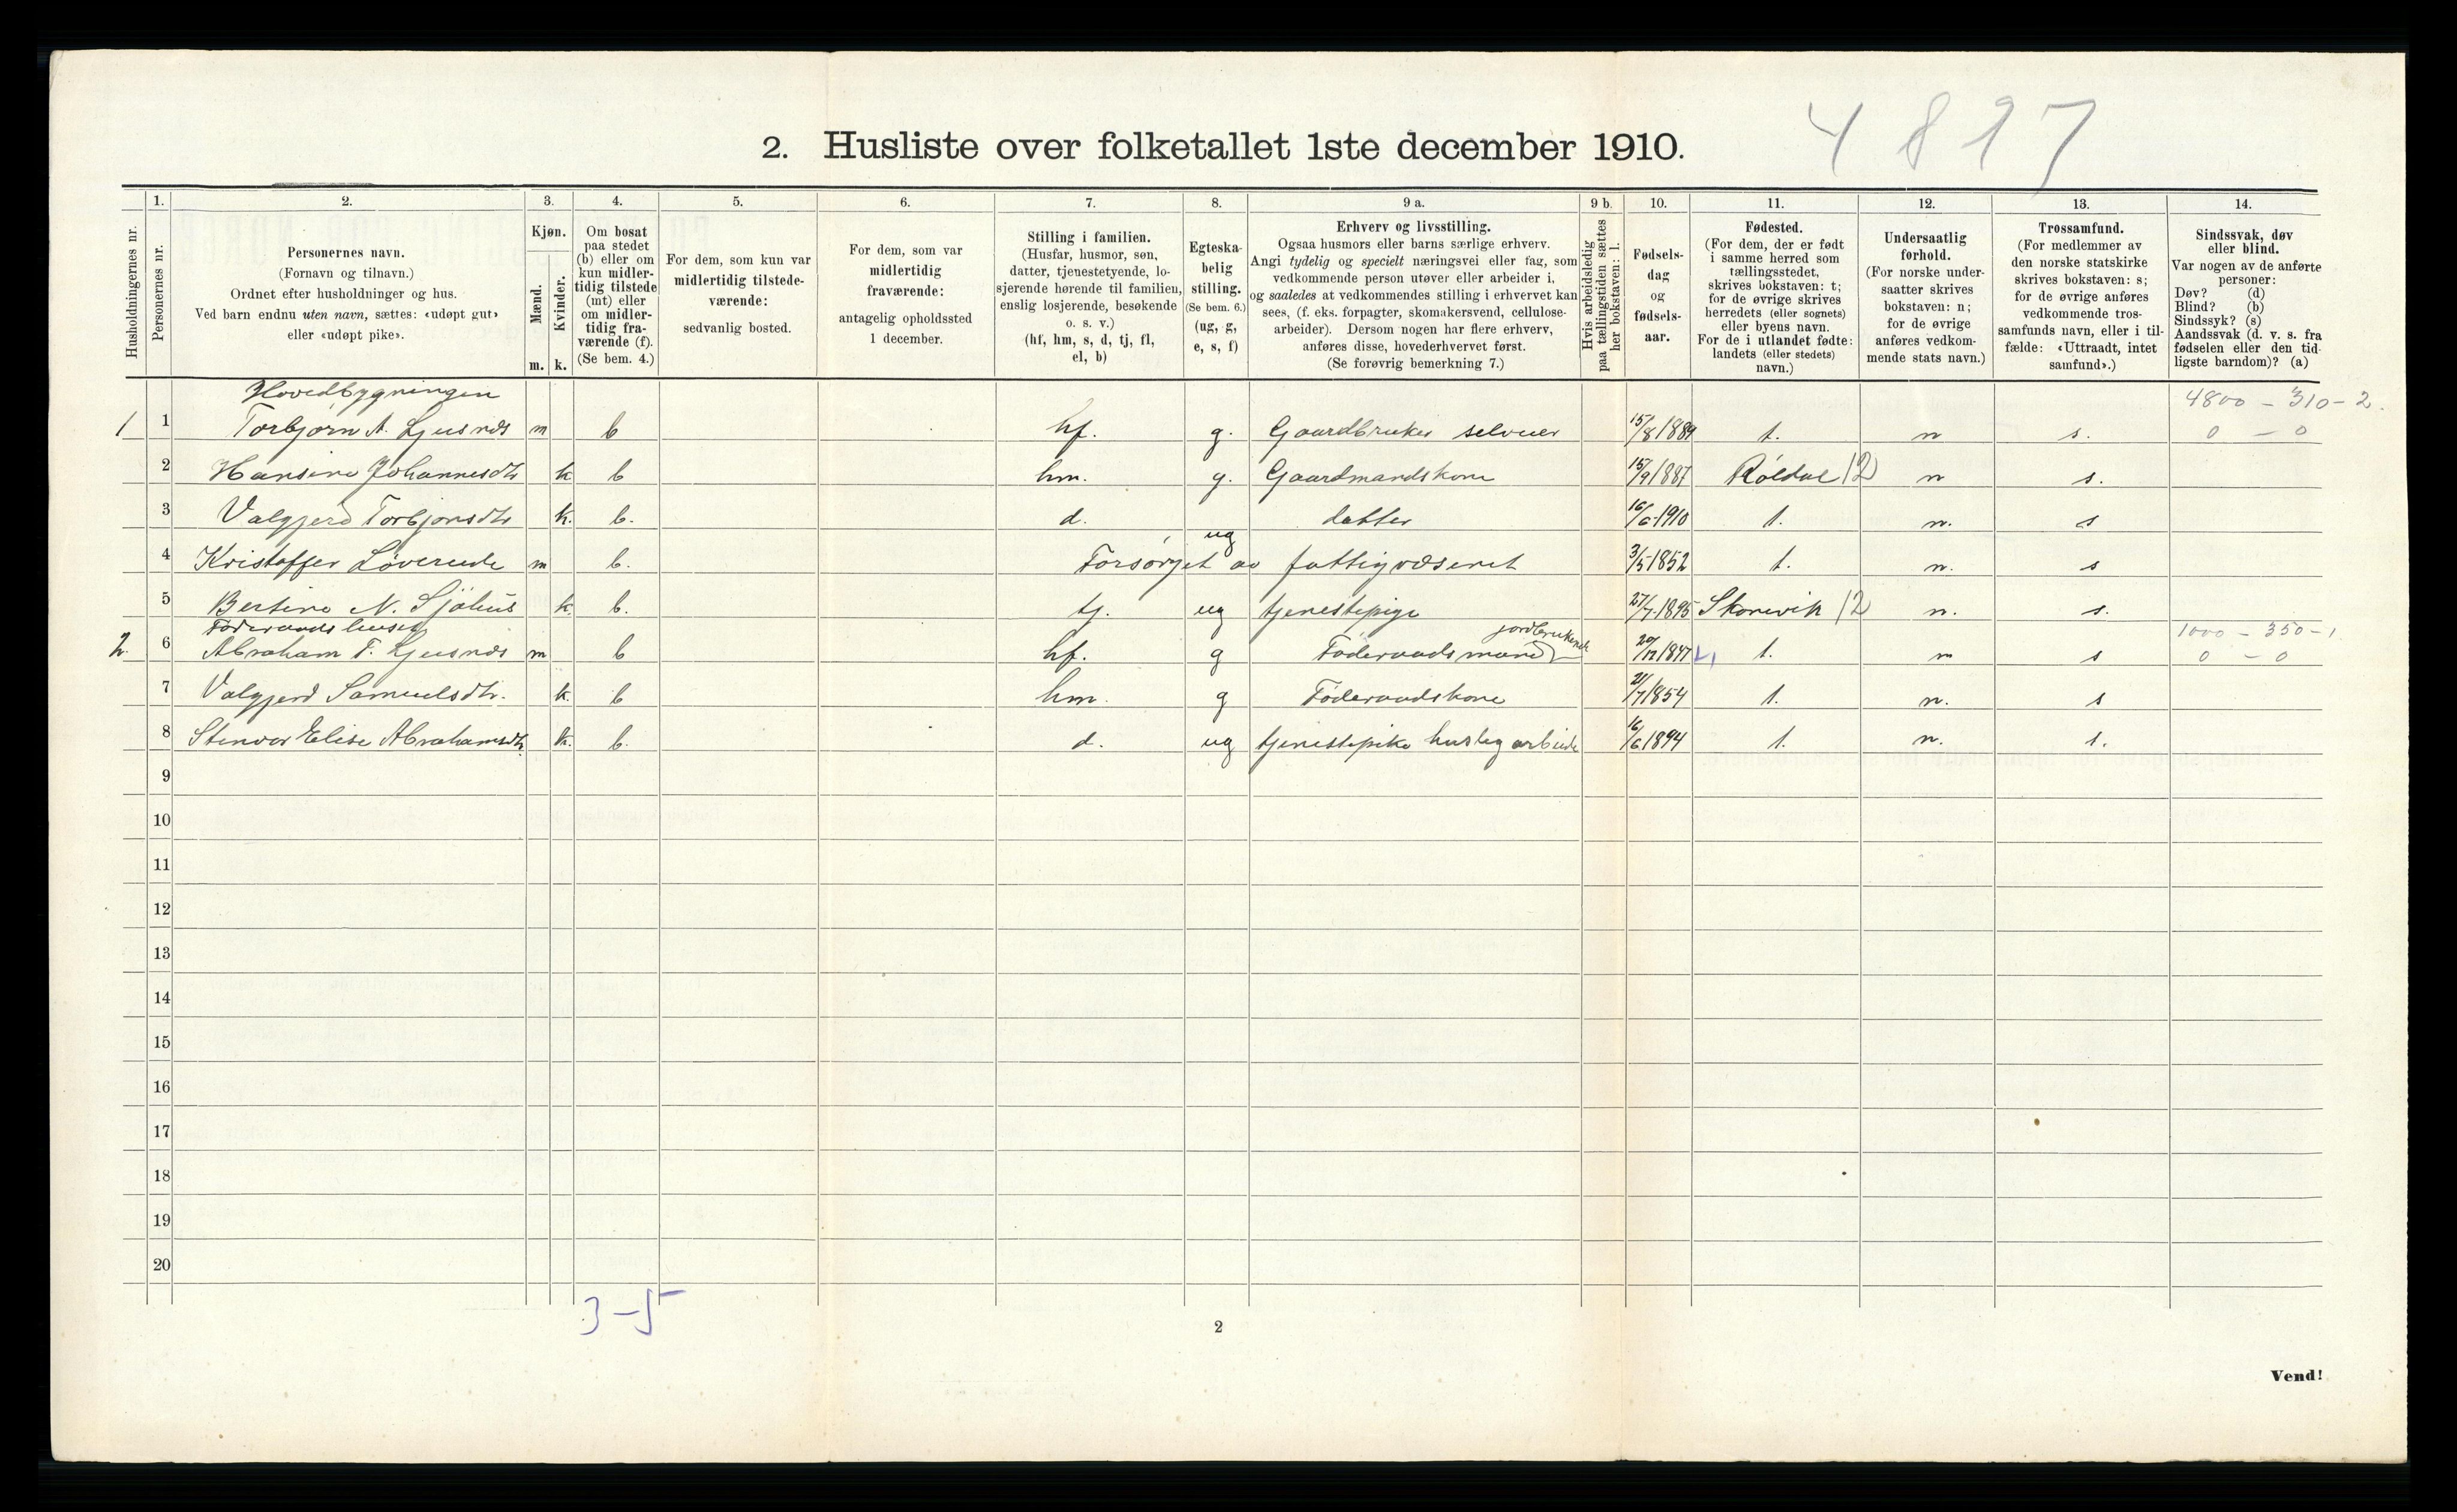 4817
2. Husliste over folketallet 1ste december 1910.
Husholdningernes nr.
1. Personernes nr.
2. Personernes navn.
(Fornavn og tilnavn.)
Ordnet efter husholdninger og hus.
Ved barn endnu uten navn, sættes: «udøpt gut»
eller «udøpt pike».
3. Kjøn.
Mænd. m.
Kvinder. k.
4. Om bosat
paa stedet
(b) eller om
kun midler-
tidig tilstede
(mt) eller
om midler-
tidig fra-
værende (f).
(Se bem. 4.)
5. For dem, som kun var
midlertidig tilstede-
værende:
sedvanlig bosted.
6. For dem, som var
midlertidig
fraværende:
antagelig opholdssted
1 december.
7. Stilling i familien.
(Husfar, husmor, søn,
datter, tjenestetyende, lo-
sjerende hørende til familien,
enslig losjerende, besøkende
o. s. v.)
(hf, hm, s, d, tj, fl,
el, b)
8. Egteska-
belig
stilling.
(Se bem. 6.)
(ug, g,
e, s, f)
9 a. Erhverv og livsstilling.
Ogsaa husmors eller barns særlige erhverv.
Angi tydelig og specielt næringsvei eller fag, som
vedkommende person utøver eller arbeider i,
og saaledes at vedkommendes stilling i erhvervet kan
sees, (f. eks. forpagter, skomakersvend, cellulose-
arbeider). Dersom nogen har flere erhverv,
anføres disse, hovederhvervet først.
(Se forøvrig bemerkning 7.)
9 b. Hvis arbeidsledig
paa tællingstiden sættes
her bokstaven: l.
10. Fødsels-
dag
og
fødsels-
aar.
11. Fødested.
(For dem, der er født
i samme herred som
tællingsstedet,
skrives bokstaven: t;
for de øvrige skrives
herredets (eller sognets)
eller byens navn.
For de i utlandet fødte:
landets (eller stedets)
navn.)
12. Undersaatlig
forhold.
(For norske under-
saatter skrives
bokstaven: n;
for de øvrige
anføres vedkom-
mende stats navn.)
13. Trossamfund.
(For medlemmer av
den norske statskirke
skrives bokstaven: s;
for de øvrige anføres
vedkommende tros-
samfunds navn, eller i til-
fælde: «Uttraadt, intet
samfund».)
14. Sindssvak, døv
eller blind.
Var nogen av de anførte
personer:
Døv? (d)
Blind? (b)
Sindssyk? (s)
Aandssvak (d. v. s. fra
fødselen eller den tid-
ligste barndom)? (a)
Hovedbygningen 4800 - 310 - 2.
1 1 Torbjørn A. Ljusnæs m b hf. g. Gaardbruker selveier 15/8 1889 t. n s. 0 - 0
2 Hansine Johannesdtr k b hm. g. Gaardmandskone 15/9 1887 Røldal 12 n s.
3 Valgjerd Torbjørnsdtr k. b. d. datter 16/6 1910 t. n. s
ug
4 Kristoffer Løverude m b. Forsørget av fattigvæsenet 3/5 1852 t. n. s
5 Bertine N. Sjøhus k. b. tj. ug tjenestepige 27/7 1895 Skonevik 12 n. s.
Føderaadshuset jordbrukende 1000 - 350 - 1
2. 6 Abraham T. Ljusnæs m b hf. g Føderaadsmand 20/12 1847 t. n s 0 - 0
7 Valgjerd Samuelsdtr. k. b hm. g Føderaadskone 21/7 1854 t. n. s
8 Stenvor Elise Abrahamsdtr. k. b. d. ug tjenestepike huslig arbeide 16/6 1894 t. n. s.
9
10
11
12
13
14
15
16
17
18
19
20
3-5
2
Vend!